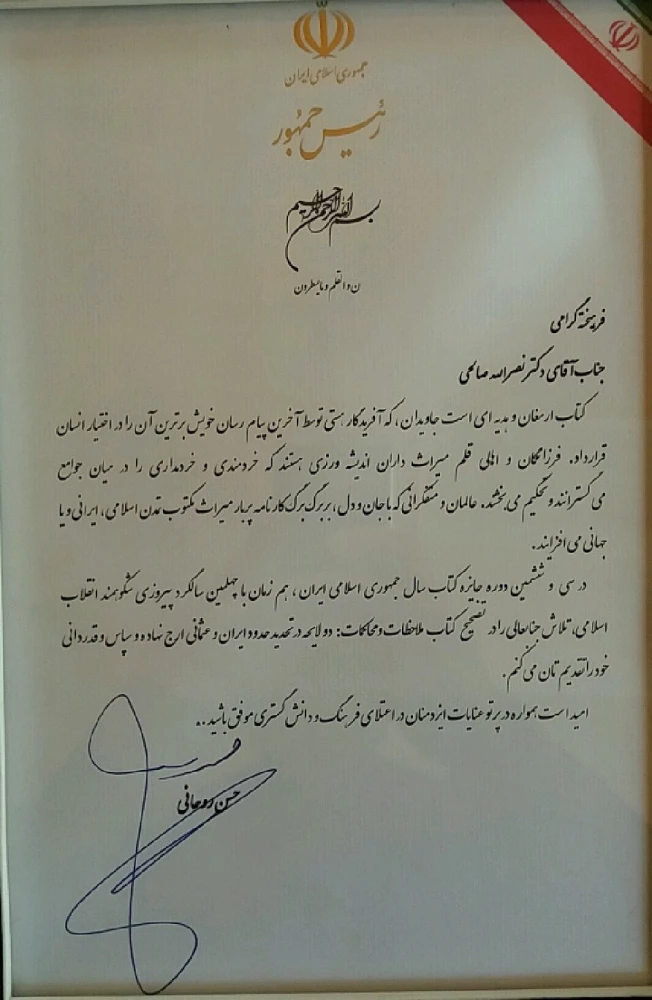 جمهوری اسلامی ایران
رئیس جمهور
بسم الله الرحمن الرحیم
ن و القلم و ما یسطرون
فرهیخته گرامی
جناب آقای دکتر نصرالله صالحی
کتاب ارمغان و هدیه ای است جاویدان، که آفریدگار هستی توسط آخرین پیام رسان خویش برترین آن را در اختیار انسان
قرار داد. فرزانگان و اهالی قلم میراث داران اندیشه ورزی هستند که خردمندی و خردمداری را در میان جوامع
می گسترانند و تحکیم می بخشند. عالمان و متفکرانی که با جان و دل، بر برگ برگ کارنامه پربار میراث مکتوب تمدن اسلامی، ایرانی و یا
جهانی می افزایند.
در سی و ششمین دوره جایزه کتاب سال جمهوری اسلامی ایران، هم زمان با چهلمین سالگرد پیروزی شکوهمند انقلاب
اسلامی، تلاش جنابعالی را در تصحیح کتاب ملاحظات و محاکمات: دو لایحه در تحدید حدود ایران و عثمانی ارج نهاده و سپاس و قدردانی
خود را تقدیم تان می کنم.
امید است همواره در پرتو عنایات ایزد منان در اعتلای فرهنگ و دانش گستری موفق باشید..
حسن روحانی